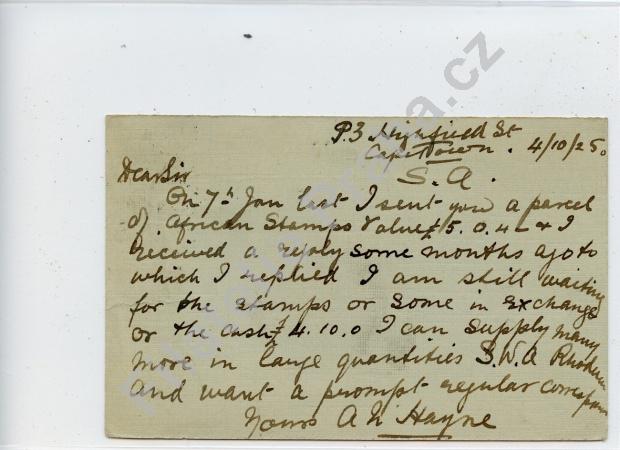 P.3 Highfield St
Cape Town. 4/10/25.
S. A.
Dear Sir
On 7th Jan last I sent you a parcel
of African Stamps Value £5.0.4 - & I
received a reply some months ago to
which I replied I am still waiting
for the stamps or some in exchange
or the cash £4.10.0 I can supply many
more in large quantities S.W.A Rhodesn
and want a prompt regular correspon
Yours A Hayne